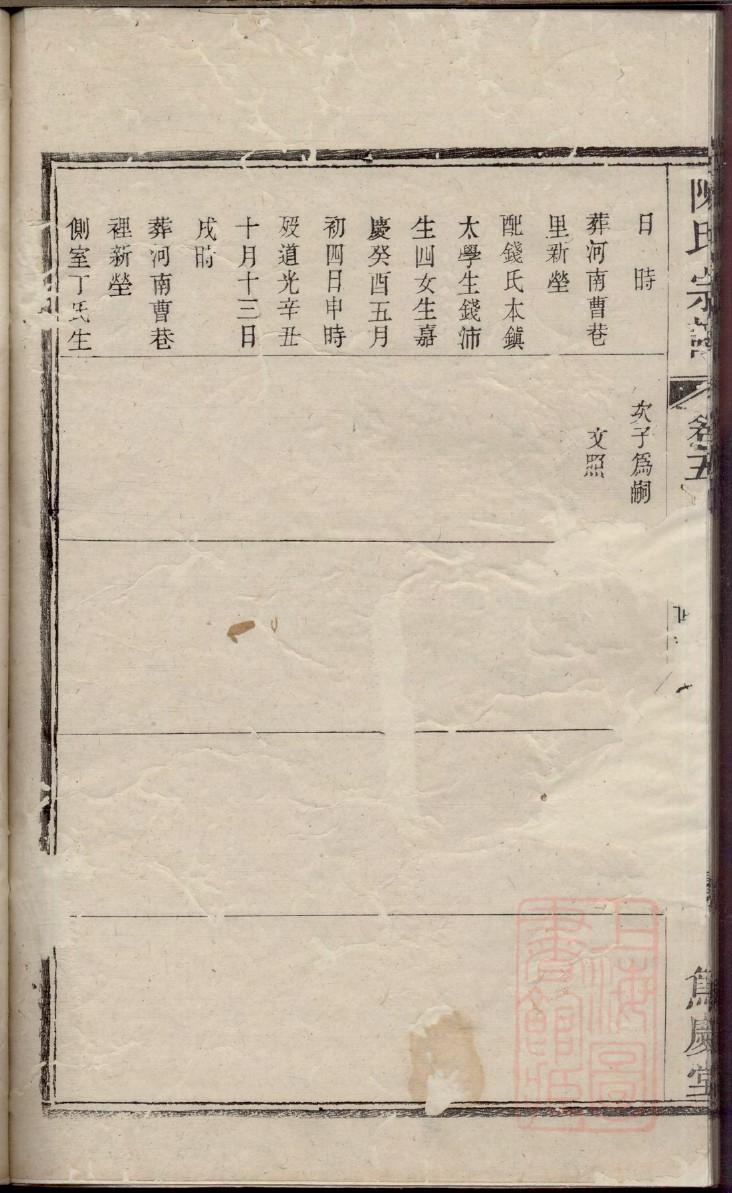 陳氏宗譜
卷五
日時
葬河南曹巷
里新塋
配錢氏本鎮
太學生錢沛
生四女生嘉
慶癸酉五月
初四日申時
歿道光辛丑
十月十三日
戌時
葬河南曹巷
裡新塋
側室丁氏生
次子爲嗣
文照
慶堂
上海圖
書館藏